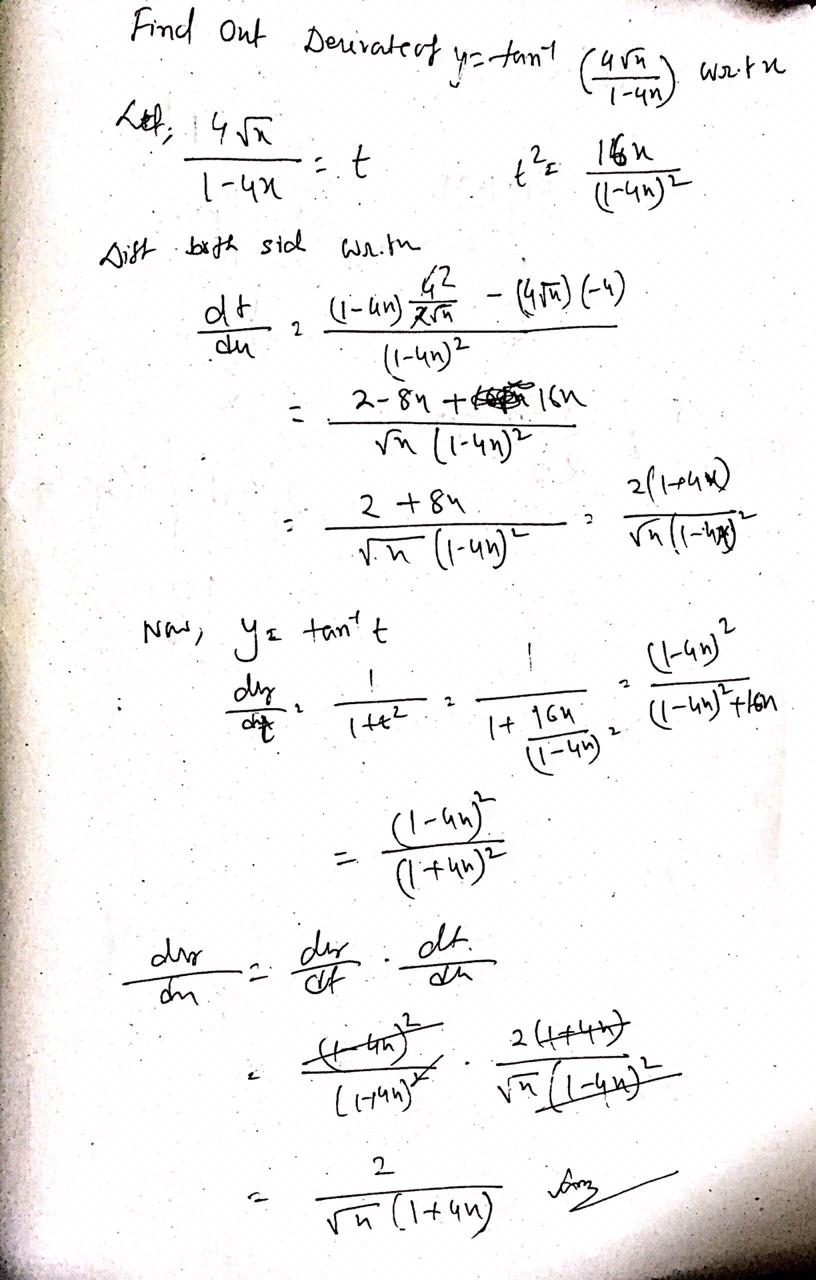 Find Out Derivate of y = tan⁻¹ (4√x / 1-4x) w.r.t x
Let, 4√x / 1-4x = t    t² = 16x / (1-4x)²
Diff both sid w.r.tx
dt/dx = (1-4x) 4 2/2√x - (4√x) (-4) / (1-4x)²
= 2-8x + 16x / √x (1-4x)²
= 2 + 8x / √x (1-4x)² = 2(1+4x) / √x (1-4x)²
Now, y = tan⁻¹ t
: dy/dt = 1 / 1+t² = 1 / 1 + 16x/(1-4x)² = (1-4x)² / (1-4x)² + 16x
= (1-4x)² / (1+4x)²
dy/dx = dy/dt . dt/dx
= (1-4x)² / (1+4x)² . 2(1+4x) / √x (1-4x)²
= 2 / √x (1+4x) Ans